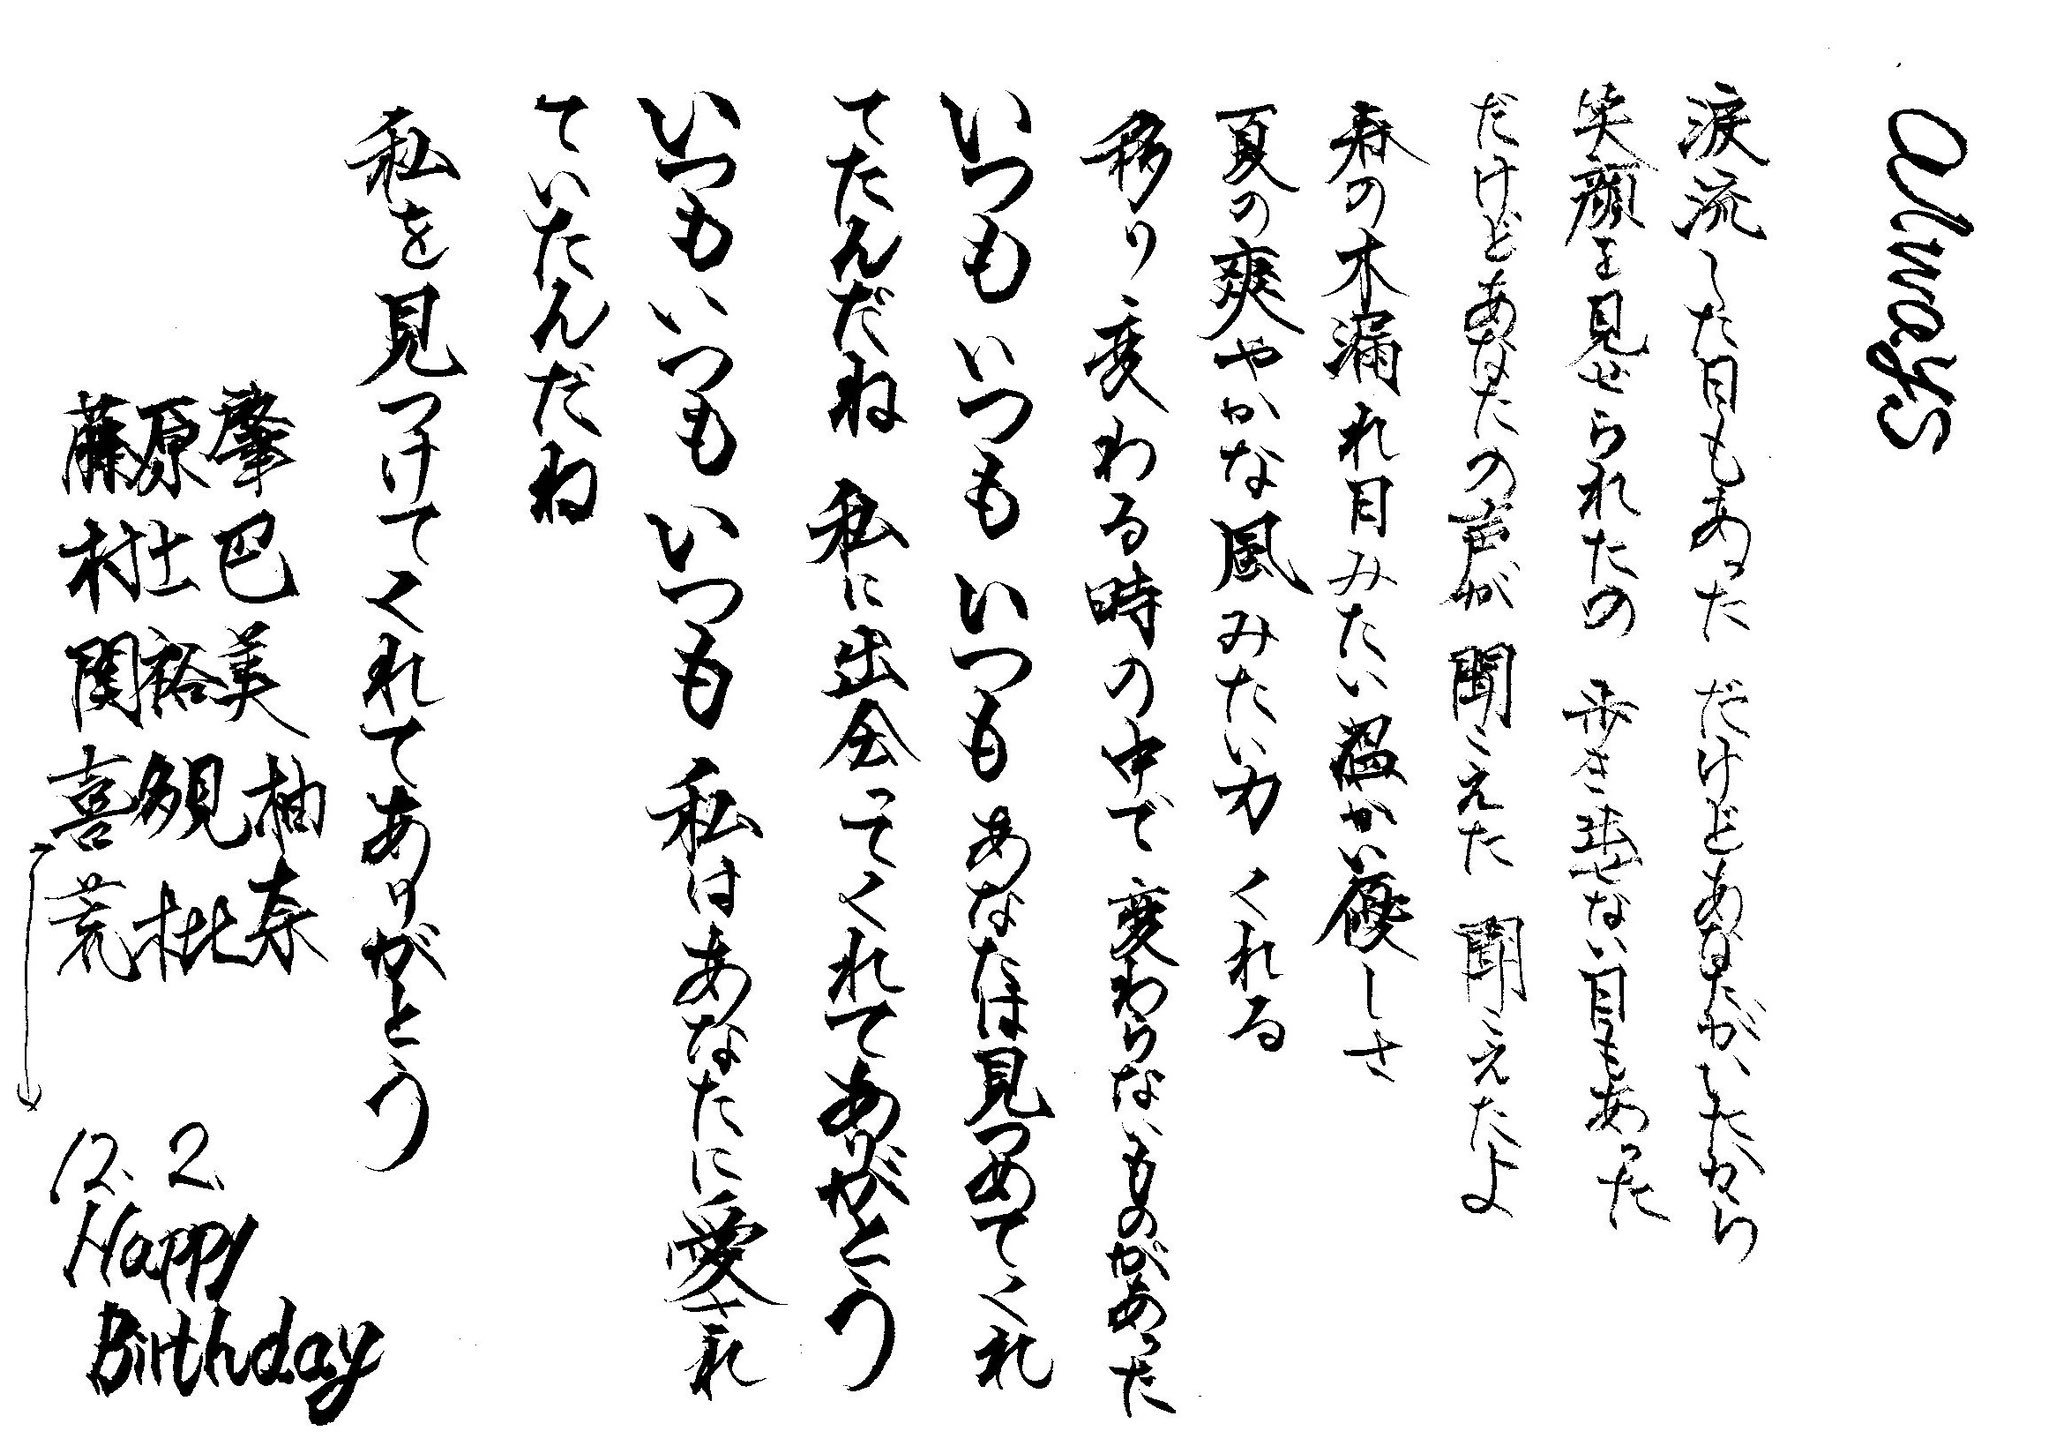 always
涙流した日もあった だけどあなたがいたから
笑顔を見せられたの 歩き出せない日もあった
だけどあなたの声が 聞こえた 聞こえたよ
春の木漏れ日みたい 温かい優しさ
夏の爽やかな風みたい力 くれる
移り変わる時の中で 変わらないものがあった
いつも いつも いつも あなたは見つめてくれ
てたんだね 私に出会ってくれてありがとう
いつも いつも いつも 私はあなたに愛され
ていたんだね
私を見つけてくれてありがとう
肇 巴 美 柚 奈
藤 村 関 喜 荒
12.2
Happy
Birthday